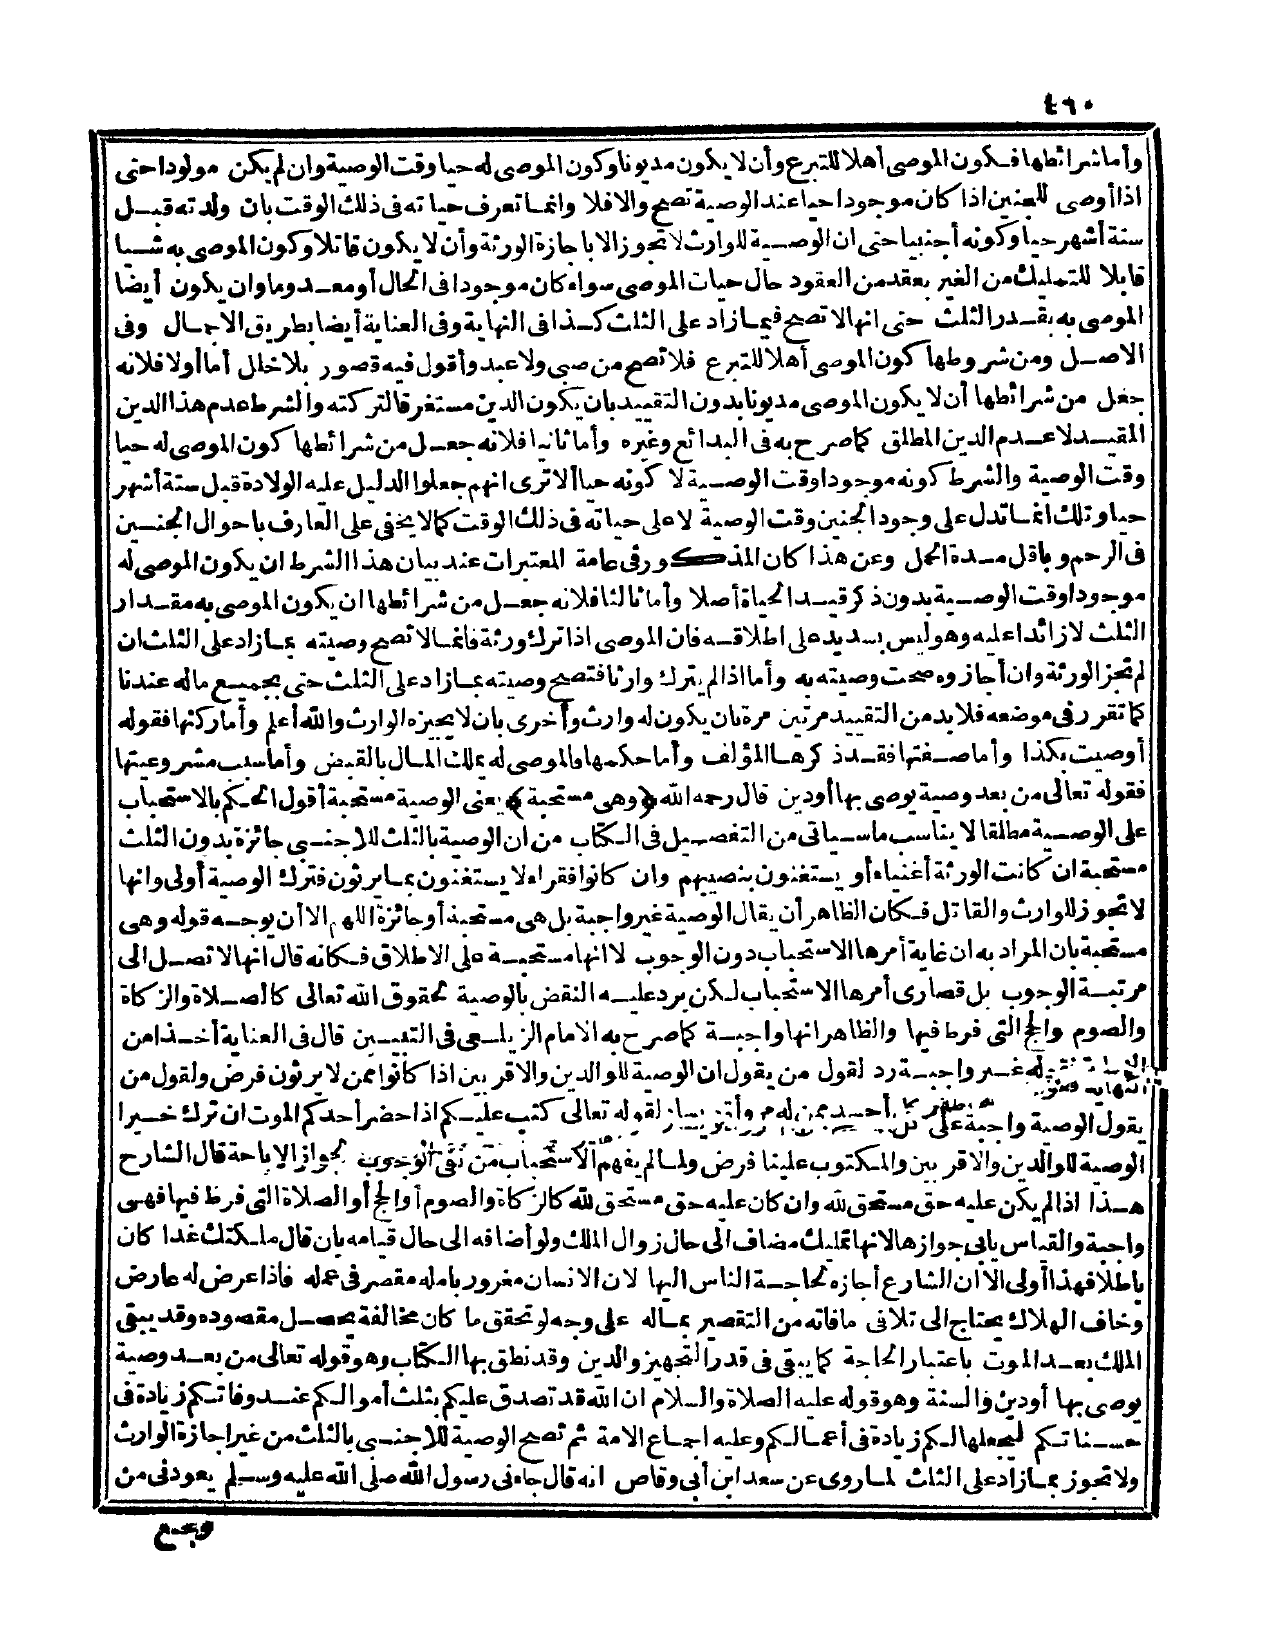 ٤٦٠
وأما شرائطها فكون الموصى أهلا للتبرع وأن لا يكون مديونا وكون الموصى له حيا وقت الوصية وان لم يكن مولودا حتى
اذا أوصى للجنين اذا كان موجودا حيا عند الوصية تصح والا فلا وانما تعرف حياته فى ذلك الوقت بان ولدته قبل
ستة أشهر حيا وكونه أجنبيا حتى ان الوصية للوارث لا تجوز الا باجازة الورثة وأن لا يكون قاتلا وكون الموصى به شيأ
قابلا للتمليك من الغير بعقد من العقود حال حيات الموصى سواء كان موجودا فى الحال أو معدوما وان يكون أيضا
الموصى به بقدر الثلث حتى انها لا تصح فيما زاد على الثلث كذا فى النهاية وفى العناية أيضا بطريق الاجمال وفى
الاصل ومن شروطها كون الموصى أهلا للتبرع فلا تصح من صبى ولا عبد وأقول فيه قصور بلا خلل أما أولا فلانه
جعل من شرائطها أن لا يكون الموصى مديونا بدون التقييد بان يكون الدين مستغرقا لتركته والشرط عدم هذا الدين
المقيد لا عدم الدين المطلق كما صرح به فى البدائع وغيره وأما ثانيا فلانه جعل من شرائطها كون الموصى له حيا
وقت الوصية والشرط كونه موجودا وقت الوصية لا كونه حيا ألا ترى انهم جعلوا الدليل عليه الولادة قبل ستة أشهر
حيا وتلك انما تدل على وجود الجنين وقت الوصية لا على حياته فى ذلك الوقت كما لا يخفى على العارف باحوال الجنين
فى الرحم وباقل مدة الحمل وعن هذا كان المذكور فى عامة المعتبرات عند بيان هذا الشرط ان يكون الموصى له
موجودا وقت الوصية بدون ذكر قيد الحياة أصلا وأما ثالثا فلانه جعل من شرائطها ان يكون الموصى به مقدار
الثلث لا زائدا عليه وهو ليس بسديد على اطلاقه فان الموصى اذا ترك ورثة فانما لا تصح وصيته بما زاد على الثلث ان
لم تجز الورثة وان أجازوه صحت وصيته به وأما اذا لم يترك وارثا فتصح وصيته بما زاد على الثلث حتى بجميع ماله عندنا
كما تقرر فى موضعه فلا بد من التقييد مرتين مرة بان يكون له وارث وأخرى بان لا يجيزه الوارث والله أعلم وأما ركنها فقوله
أوصيت بكذا وأما صفتها فقد ذكرها المؤلف وأما حكمها فالموصى له يملك المال بالقبض وأما سبب مشروعيتها
فقوله تعالى من بعد وصية يوصى بها أو دين قال رحمه الله ﴿وهى مستحبة﴾ يعنى الوصية مستحبة أقول الحكم بالاستحباب
على الوصية مطلقا لا يناسب ما سياتى من التفصيل فى الكتاب من ان الوصية بالثلث للاجنبى جائزة بدون الثلث
مستحبة ان كانت الورثة أغنياء أو يستغنون بنصيبهم وان كانوا فقراء لا يستغنون بما يرثون فترك الوصية أولى وانها
لا تجوز للوارث والقاتل فكان الظاهر أن يقال الوصية غير واجبة بل هى مستحبة أو جائزة اللهم الا أن يوجه قوله وهى
مستحبة بان المراد به ان غاية أمرها الاستحباب دون الوجوب لا انها مستحبة على الاطلاق فكانه قال انها لا تصل الى
مرتبة الوجوب بل قصارى أمرها الاستحباب لكن يرد عليه النقض بالوصية لحقوق الله تعالى كالصلاة والزكاة
والصوم والحج التى فرط فيها والظاهر انها واجبة كما صرح به الامام الزيلعى فى التبيين قال فى العناية أخذا من
النهاية قوله غير واجبة رد لقول من يقول ان الوصية للوالدين والاقربين اذا كانوا ممن لا يرثون فرض ولقول من
يقول الوصية واجبة على كل أحد ممن له لقوله تعالى كتب عليكم اذا حضر أحدكم الموت ان ترك خيرا
الوصية للوالدين والاقربين والمكتوب علينا فرض ولما لم يفهم الاستحباب من نفى الوجوب لجواز الاباحة قال الشارح
هذا اذا لم يكن عليه حق مستحق لله وان كان عليه حق مستحق لله كالزكاة والصوم أو الحج أو الصلاة التى فرط فيها فهى
واجبة والقياس يابى جوازها لانها تمليك مضاف الى حال زوال الملك ولو أضافه الى حال قيامه بان قال ملكتك غدا كان
باطلا فهذا أولى الا أن الشارع أجازه لحاجة الناس اليها لان الانسان مغرور بامله مقصر فى عمله فاذا عرض له عارض
وخاف الهلاك يحتاج الى تلافى ما فاته من التقصير بماله على وجه لو تحقق ما كان مخالفة يحصل مقصوده وقد يبقى
الملك بعد الموت باعتبار الحاجة كما يبقى فى قدر التجهيز والدين وقد نطق بها الكتاب وهو قوله تعالى من بعد وصية
يوصى بها أو دين والسنة وهو قوله عليه الصلاة والسلام ان الله قد تصدق عليكم بثلث أموالكم عند وفاتكم زيادة فى
حسناتكم ليجعلها لكم زيادة فى أعمالكم وعليه اجماع الامة ثم تصح الوصية للاجنبى بالثلث من غير اجازة الوارث
ولا تجوز بما زاد على الثلث لما روى عن سعد ابن أبى وقاص انه قال جاءنى رسول الله صلى الله عليه وسلم يعودنى من
وجع